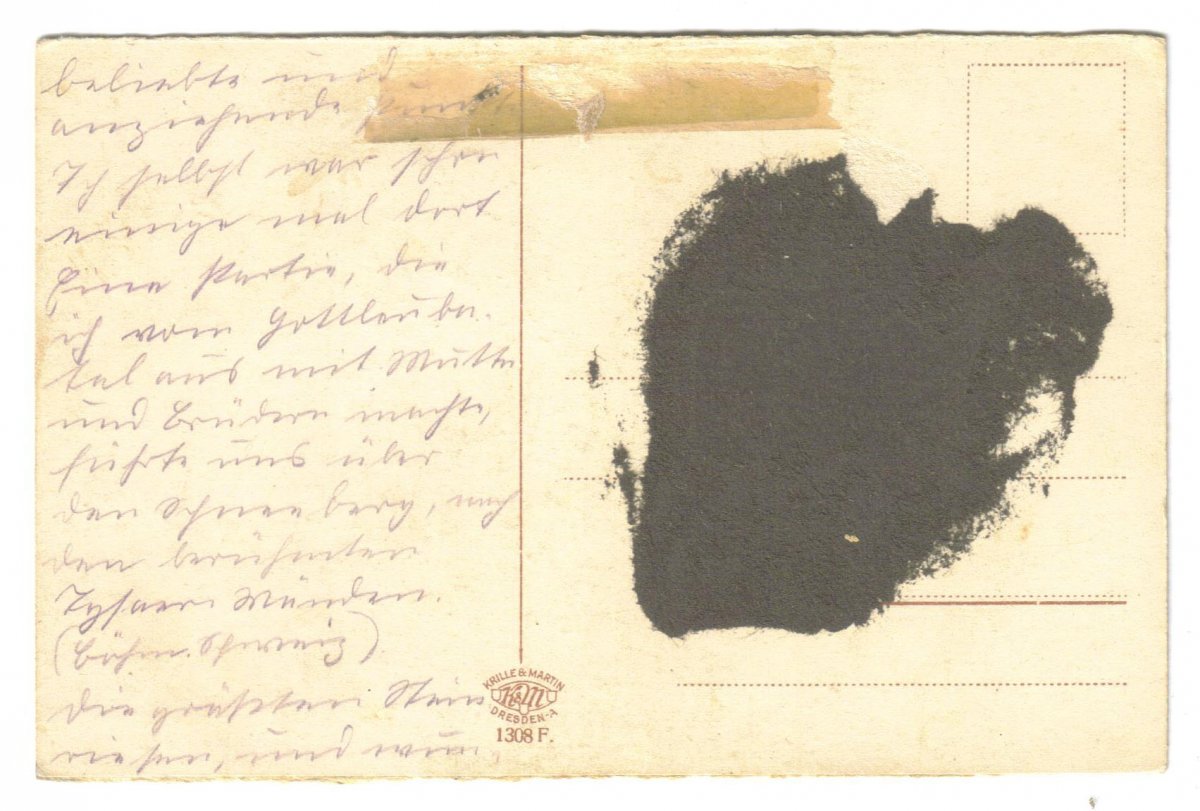 beliebte und
anziehende
Ich selbst war schon
einige mal dort
Eine Partie, die
ich vom Gottleuba-
tal aus mit Mutter
und Brüdern machte,
führte uns über
den Schneeberg, nach
den berühmten
Tysaer Wänden.
(Böhm. Schweiz)
Die größten Stein
riesen, und wun-
KRILLE & MARTIN
K&M
DRESDEN-A
1308 F.